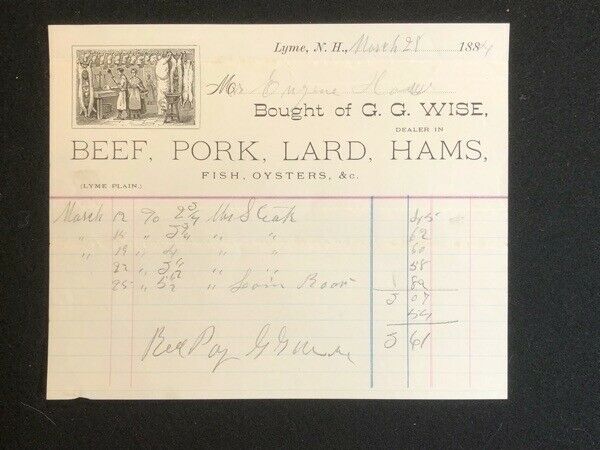 Lyme, N. H., March 28 1884
Mr Eugene
Bought of G. G. WISE,
DEALER IN
BEEF, PORK, LARD, HAMS,
FISH, OYSTERS, &c.
(LYME PLAIN.)
March 12 To 2 3/4 lbs Steak 45
" 15 " 3 3/4 " " 62
" 19 " 4 " " 60
22 " 3 " " 58
25 " 5 " " 82
3 07
54
3 61
Rec Pay G G Wise